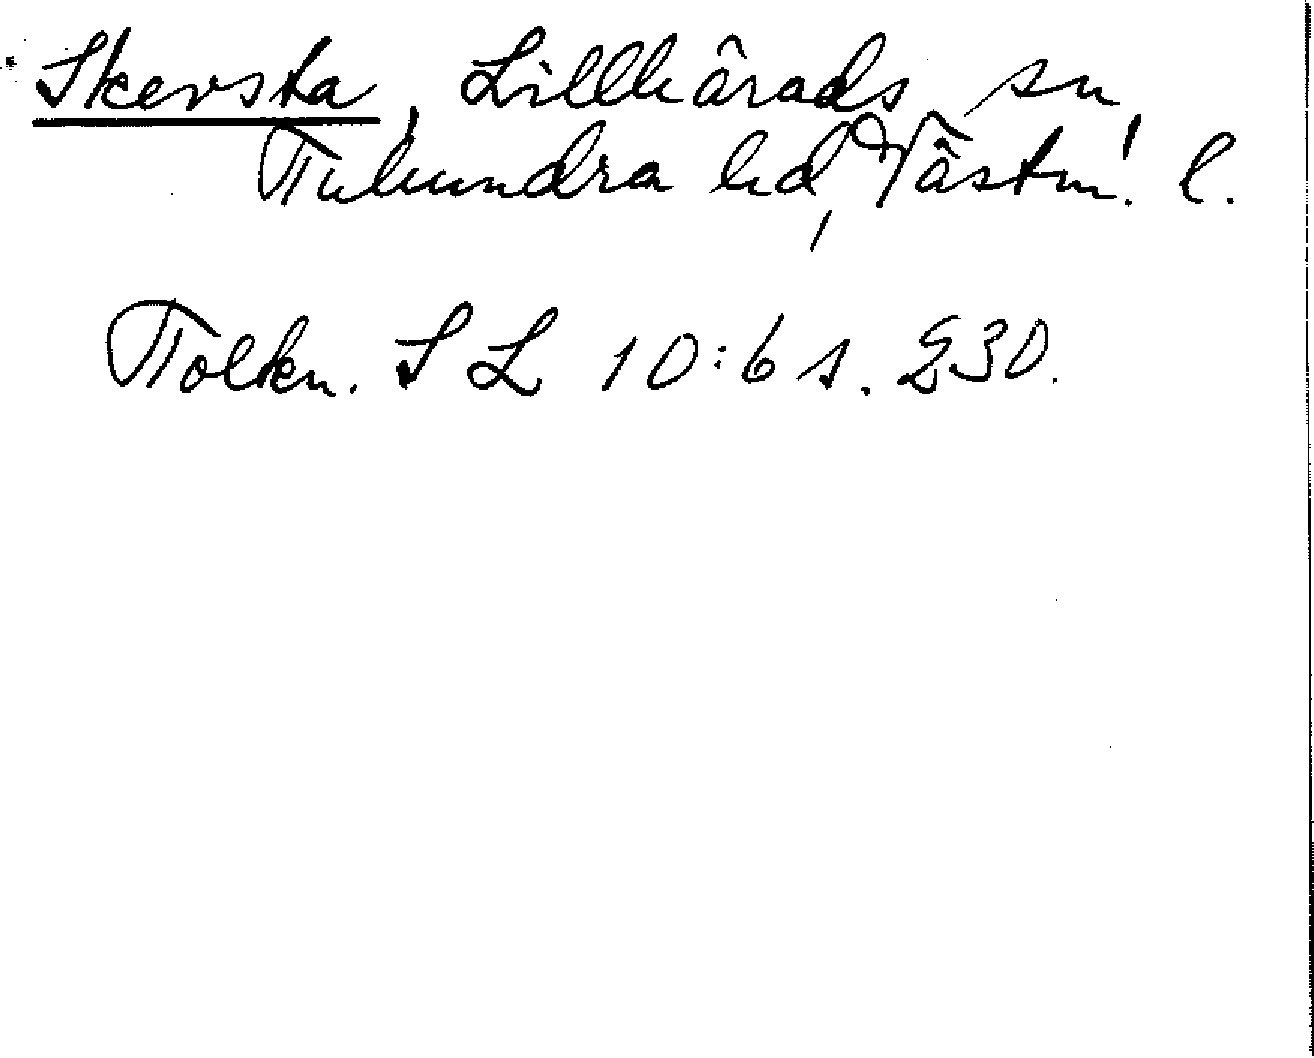 Skersta, Lillhärads sn,
Tuhundra hd, Västm. l.
Tolkn. SL 10:6 s. 230.